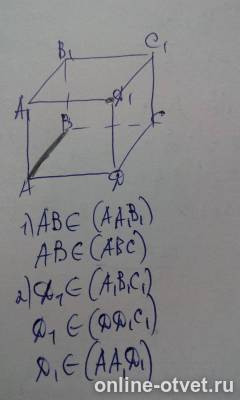 B₁ C₁
A₁ D₁
B C
A D
1) AB ∈ (AA₁B₁)
AB ∈ (ABC)
2) D₁ ∈ (A₁B₁C₁)
D₁ ∈ (DD₁C₁)
D₁ ∈ (AA₁D₁)
online-otvet.ru